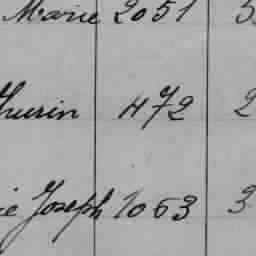 Marie 2051 5
thurin 472 2
ie Joseph 1053 3